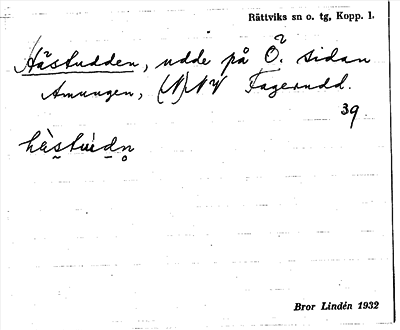 Rättviks sn o. tg, Kopp. l.
Hästudden, udde på Ö. sidan
Amungen, (N)NV Fagerudd.
39.
hästùdn
Bror Lindén 1932